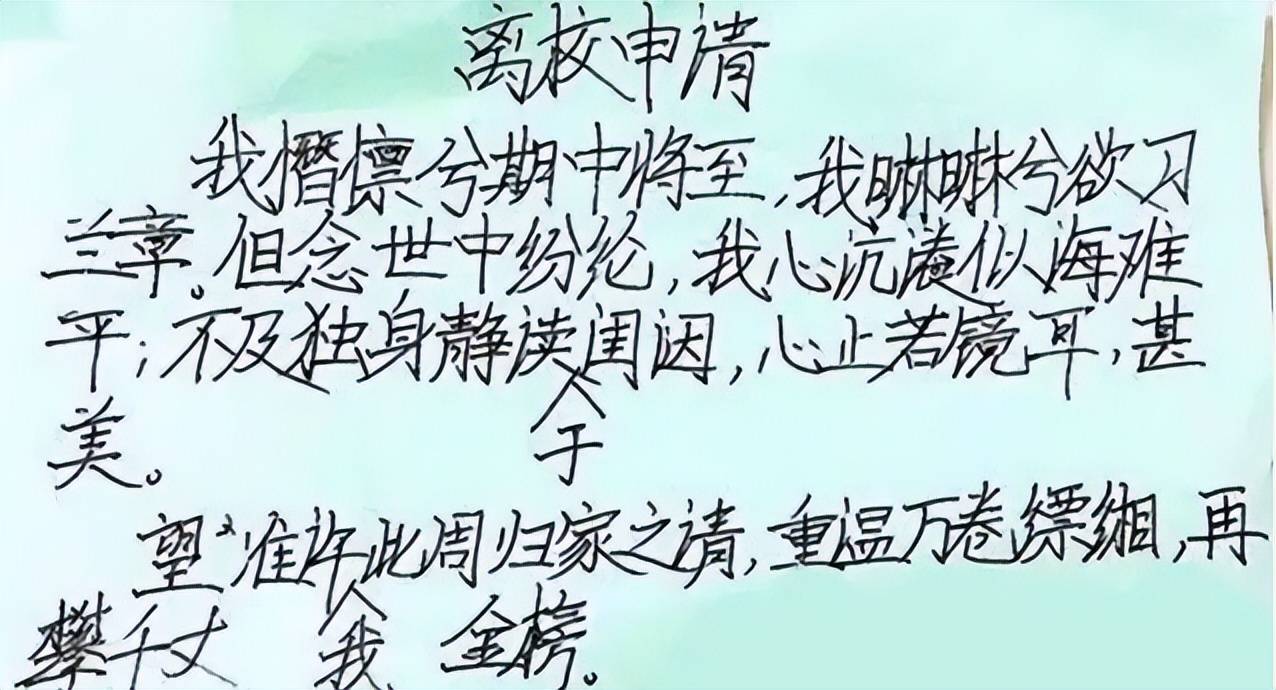 离校申请
我憯懔兮期中将至,我啉啉兮欲习
兰章。但念世中纷纶,我心沉濭似海难
平;不及独身静读于闺闼,心止若镜耳,甚
美。
望准许我此周归家之请,重温万卷缥缃,再
攀千丈金榜。